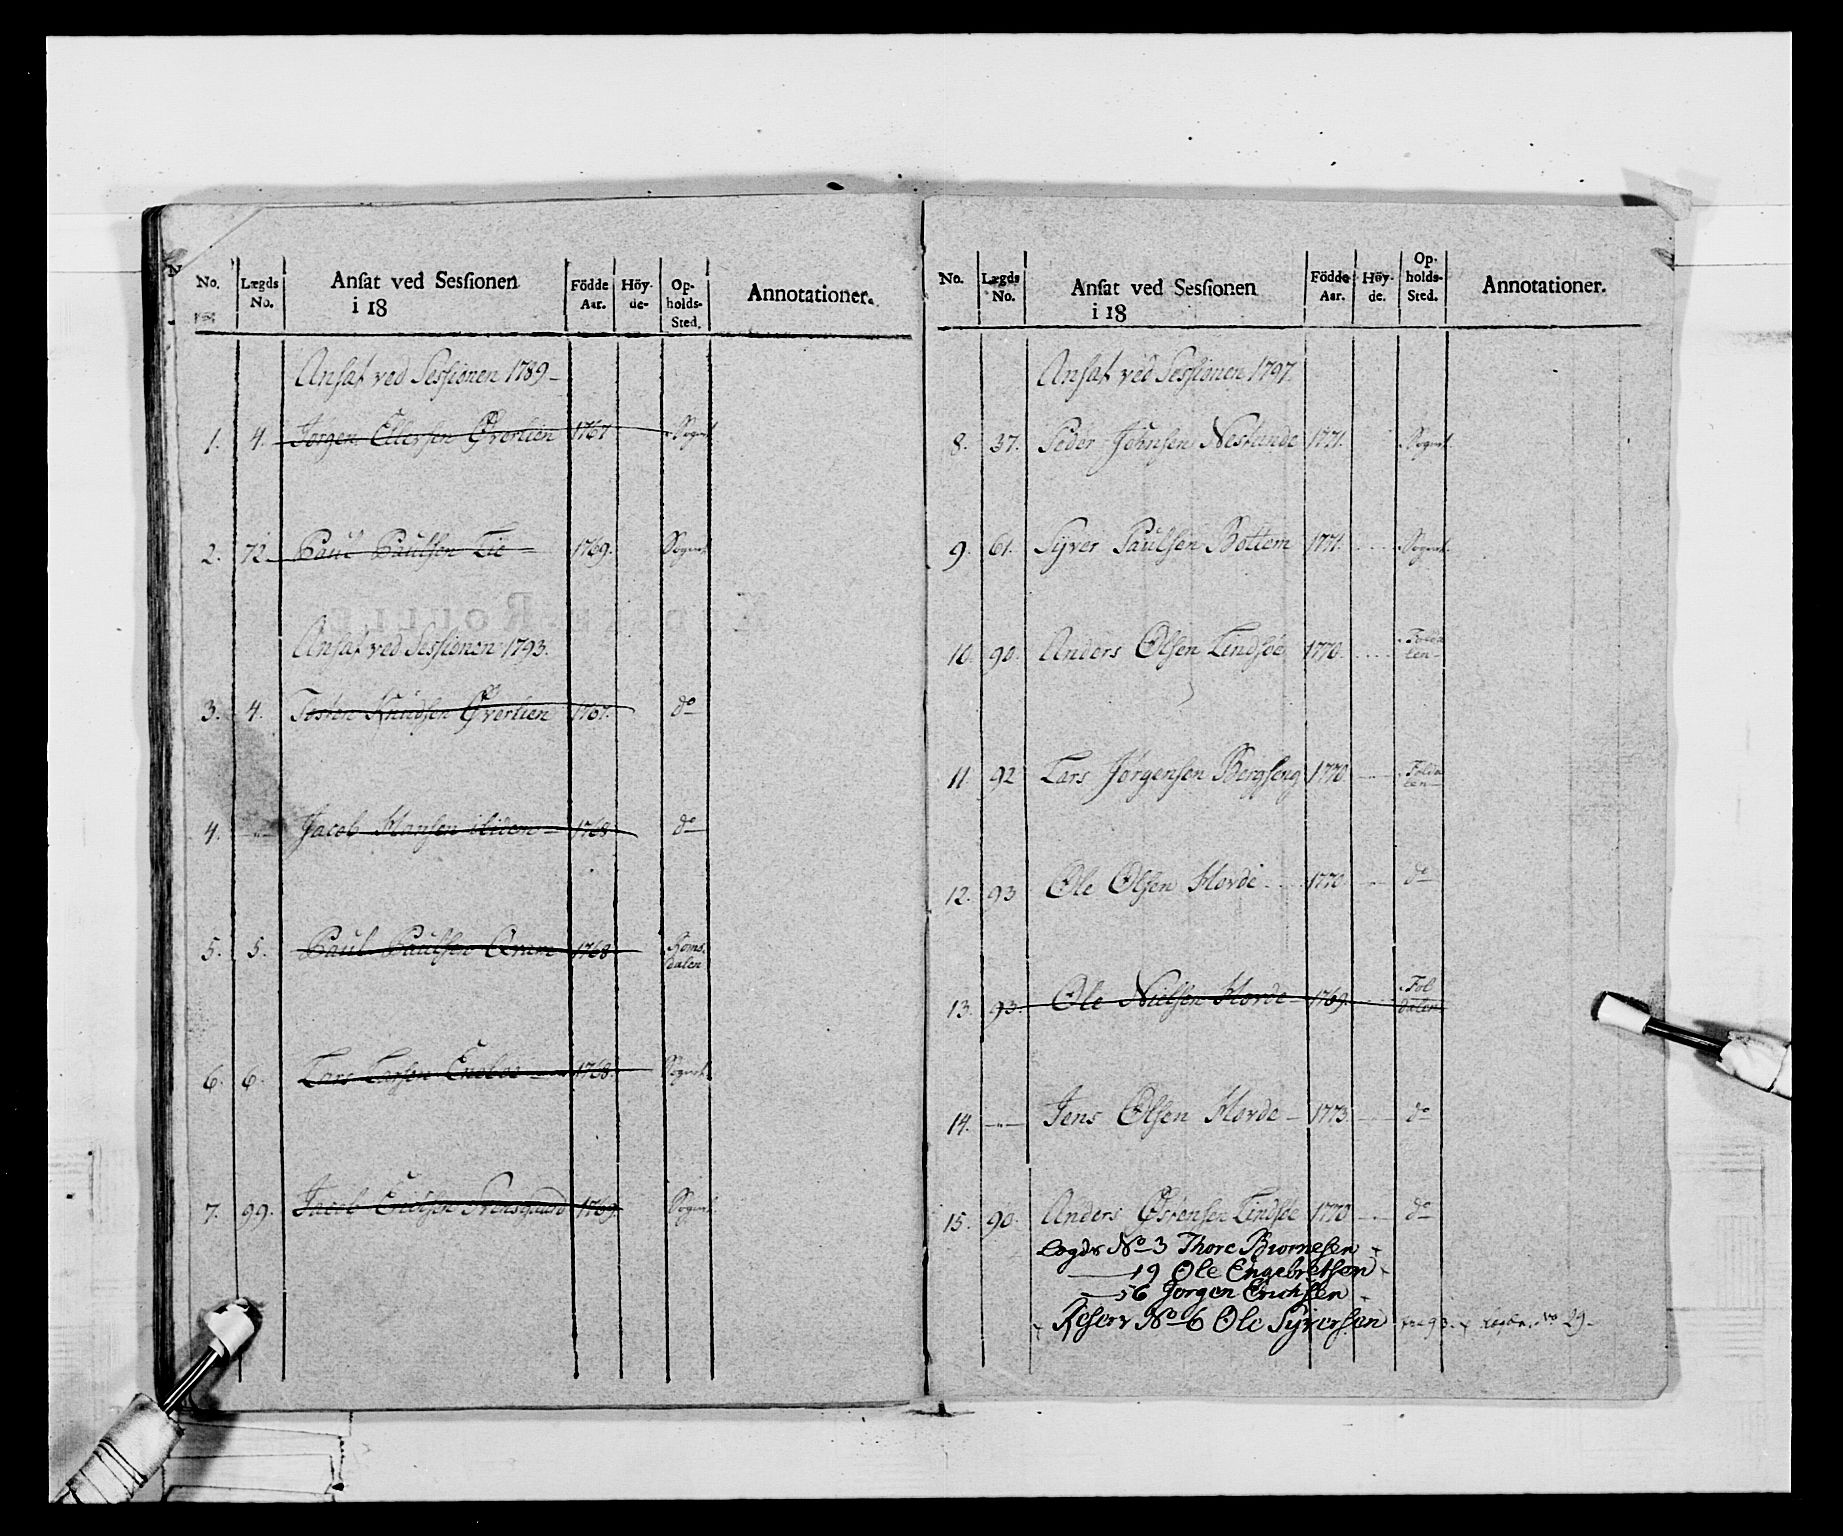 No. Lægds No. Ansat ved Sessionen i 18 Födde Aar. Höy- de- Op- holds- Sted. Annotationer.
Ansat ved Sessionen 1789
1. 4. Jørgen Ellefsen Øverlien 1767 Sognet
2. 72. Paul Paulsen Lie 1769. Sognet
Ansat ved Sessionen 1793.
3. 4. Tosten Knudsen Øverlien 1767. do
4. -"- Jacob Hansen ibidem 1768 do
5. 5. Paul Paulsen 1768 Roms- dalen
6. 6. Lars Larsen 1768. Sognet
7. 99. Jacob 1769. Sognet
No. Lægds No. Ansat ved Sessionen i 18 Födde Aar. Höy- de. Op- holds- Sted. Annotationer.
Ansat ved Sessionen 1797.
8. 37. Peder Johnsen Neslunde 1771. Sognet
9. 61. Syver Paulsen Bottem 1771. Sognet
10. 90. Anders Olsen Lindsøe 1770. Folda len
11. 92 Lars Jørgensen Bergseng 1770 Folda len
12. 93 Ole Olsen Horde 1770 do
13. 93. Ole Nielsen Horde 1769. Fol dalen
14. -"- Jens Olsen Horde 1773. do
15. 90. Anders Østensen Lindsøe 1770 do
Lægds No 3 Thore Biørnesen
19 Ole Engebretsen
56 Jørgen Erichsen
Reserv No 6 Ole Syversen 93. No 29.